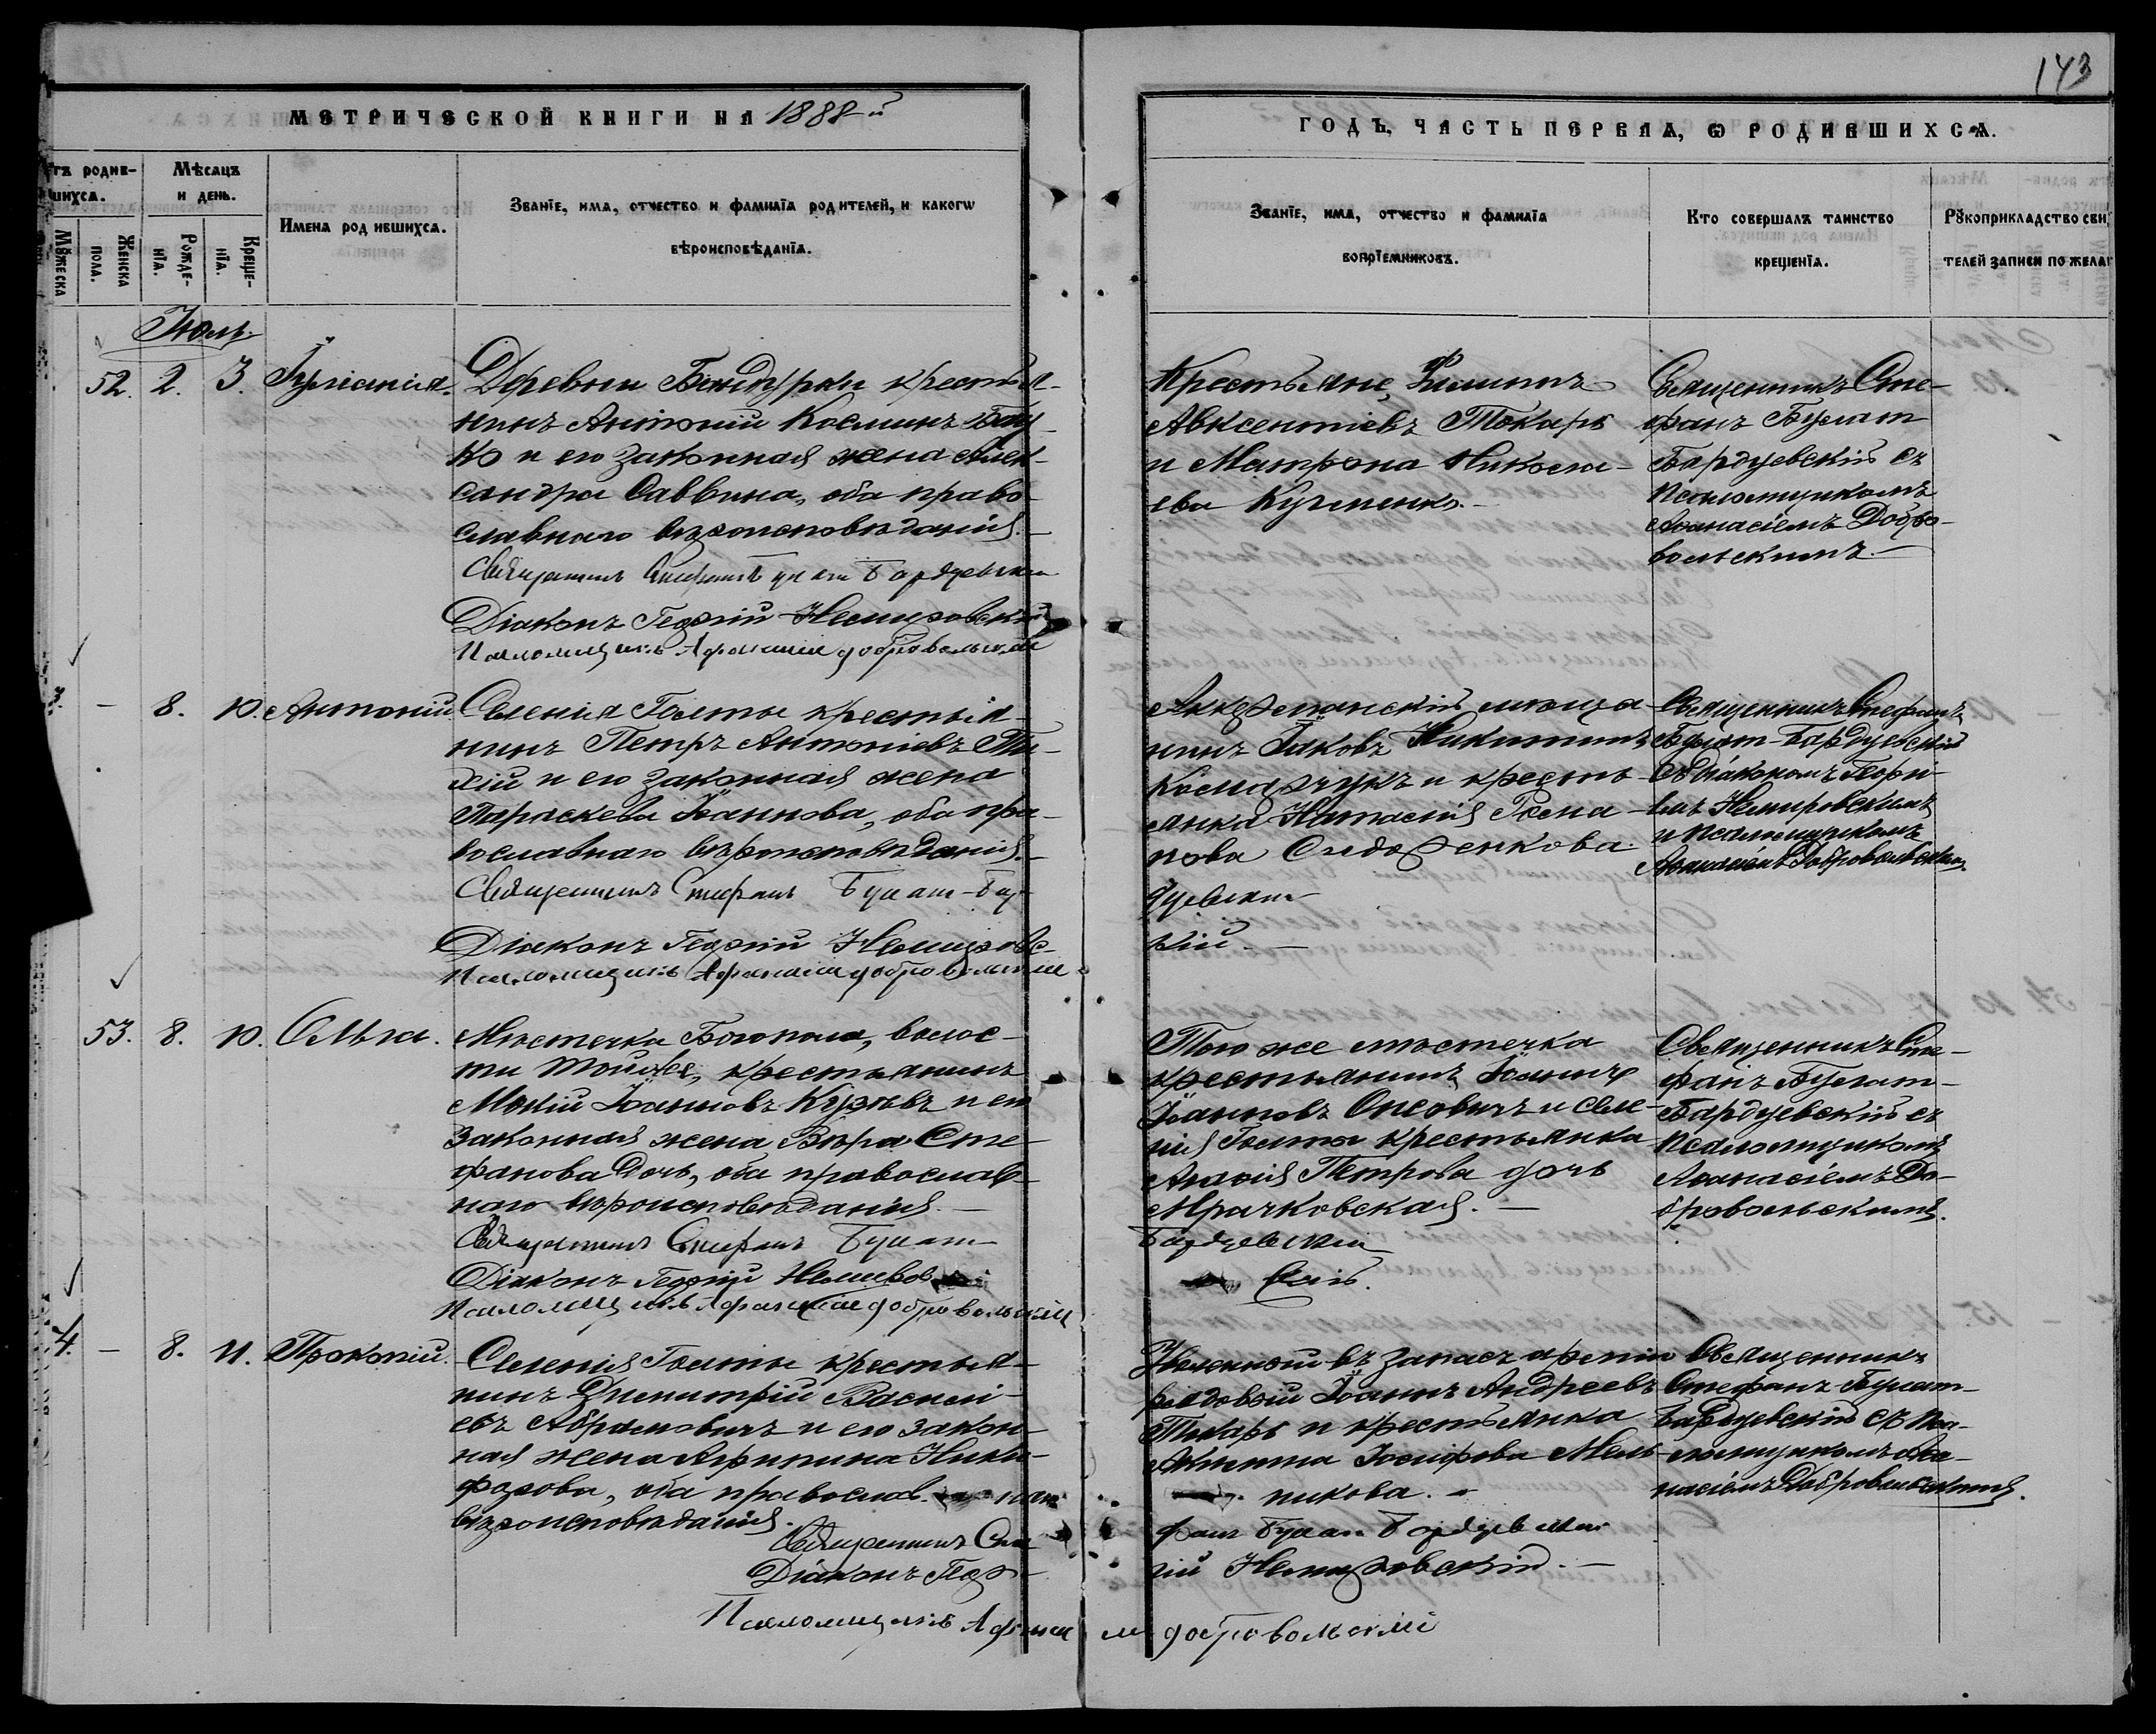 143
МЕТРИЧЕСКОЙ КНИГИ НА 1888-й
ГОДЪ, ЧАСТЬ ПЕРВАѦ, Ѡ РОДИВШИХСѦ.
родив-
шихсѧ.
Мѣсѧцъ
и день.
Мꙋжеска
Женска
пола.
Рожде-
нїѧ.
Креще-
нїѧ.
Имена родившихсѧ.
Званїе, имѧ, отчество и фамилїѧ родителей, и какогѡ
вѣроисповѣданїѧ.
Званїе, имѧ, отчество и фамилїѧ
воспрїемниковъ.
Кто совершалъ таинство
крещенїѧ.
Рꙋкоприкладство сви
телей записи по жела
Июль
52. 2. 3. Іуліанія.
Деревни Бандурки крестья-
нинъ Антоній Косминъ
ко и его законная жена Алек-
сандра Саввина, оба право-
славнаго вѣроисповѣданія.
Священникъ Стефанъ Булат Бардуевскій
Діаконъ Георгій Немировскій
Псаломщикъ Афанасій Добровольскій
Крестьяне, Филиппъ
Авксентіевъ Токарь
и Матрона Никола-
ева Кузменко.
Священникъ Сте-
фанъ Булат
Бардуевскій съ
псаломщикомъ
Аѳанасіемъ Добро-
вольскимъ.
3. - 8. 10. Антоній
Селенія Голты крестья-
нинъ Петръ Антоніевъ
и его законная жена
Параскева Іоаннова, оба пра-
вославнаго вѣроисповѣданія.
Священникъ Стефанъ Булат-Бар-
Діаконъ Георгій Немировс-
Псаломщикъ Афанасій Добровольскій
Аккерманскій мѣща-
нинъ Іаковъ Никитинъ
и кресть-
янка Наталія
нова Сидоренкова.
дуевскій
кій.
Священникъ Стефанъ
Булат-Бардуевскій
съ діакономъ Георгі-
емъ Немировскимъ
и псаломщикомъ
Аѳанасіемъ Добровольскимъ.
53. 8. 10. Ольга.
Мѣстечка Богополя, волос-
ти тойже, крестьянинъ
Мокій Іоанновъ и его
законная жена Вѣра Сте-
фанова дочь, оба православ-
наго вѣроисповѣданія.
Священникъ Стефанъ Булат
Діаконъ Георгій Немиров
Псаломщикъ Афанасій Добровольскій
Того же мѣстечка
крестьянинъ Іоаннъ
Іоанновъ и селе-
нія Голты крестьянка
Петрова дочь
Мрачковская.
Бардуевскій
скій.
Священникъ Сте-
фанъ Булат-
Бардуевскій съ
псаломщикомъ
Аѳанасіемъ До-
бровольскимъ.
4. - 8. 11. Прокопій.
Селенія Голты крестья-
нинъ Димитрій Василі-
евъ Абрамовичъ и его закон-
ная жена Агрипина Ники-
форова, оба православ наго
вѣроисповѣданія.
Священникъ Сте
Діаконъ Геор-
Псаломщикъ Афанасій Добровольскій
Уволенный въ запасъ арміи
рядовой Іоаннъ Андреевъ
Токарь и крестьянка
Іосифова Мель-
никова.
фанъ Булат Бардуевскій
гій Немировскій.
Священникъ
Стефанъ Булат-
Бардуевскій съ пса-
ломщикомъ Аѳа-
насіемъ Добровольскимъ.